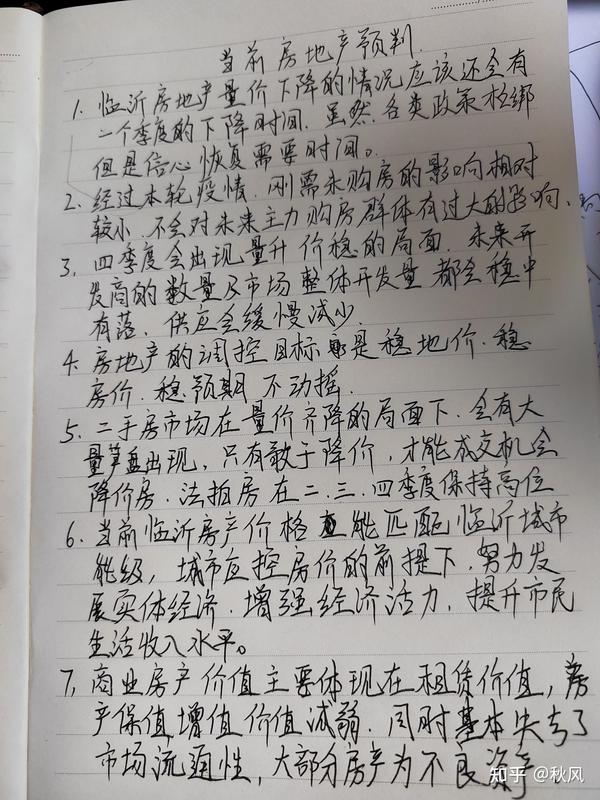 当前房地产预判.
1. 临沂房地产量价下降的情况应该还会有
一个季度的下降时间. 虽然各类政策松绑
但是信心恢复需要时间。
2. 经过本轮疫情. 刚需未购房的影响相对
较小. 不会对未来主力购房群体有过大的影响.
3. 四季度会出现量升价稳的局面. 未来开
发商的数量及市场整体开发量都会稳中
有落. 供应会缓慢减少.
4. 房地产的调控目标是稳地价. 稳
房价. 稳预期不动摇.
5. 二手房市场在量价齐降的局面下. 会有大
量笋盘出现, 只有敢于降价, 才能成交机会
降价房. 法拍房在二. 三. 四季度保持高位
6. 当前临沂房产价格能匹配临沂城市
能级, 城市应控房价的前提下. 努力发
展实体经济. 增强经济活力, 提升市民
生活收入水平。
7, 商业房产价值主要体现在租赁价值, 房
产保值增值价值减弱. 同时基本失去了
市场流通性, 大部分房产为不良资产.
知乎 @秋风